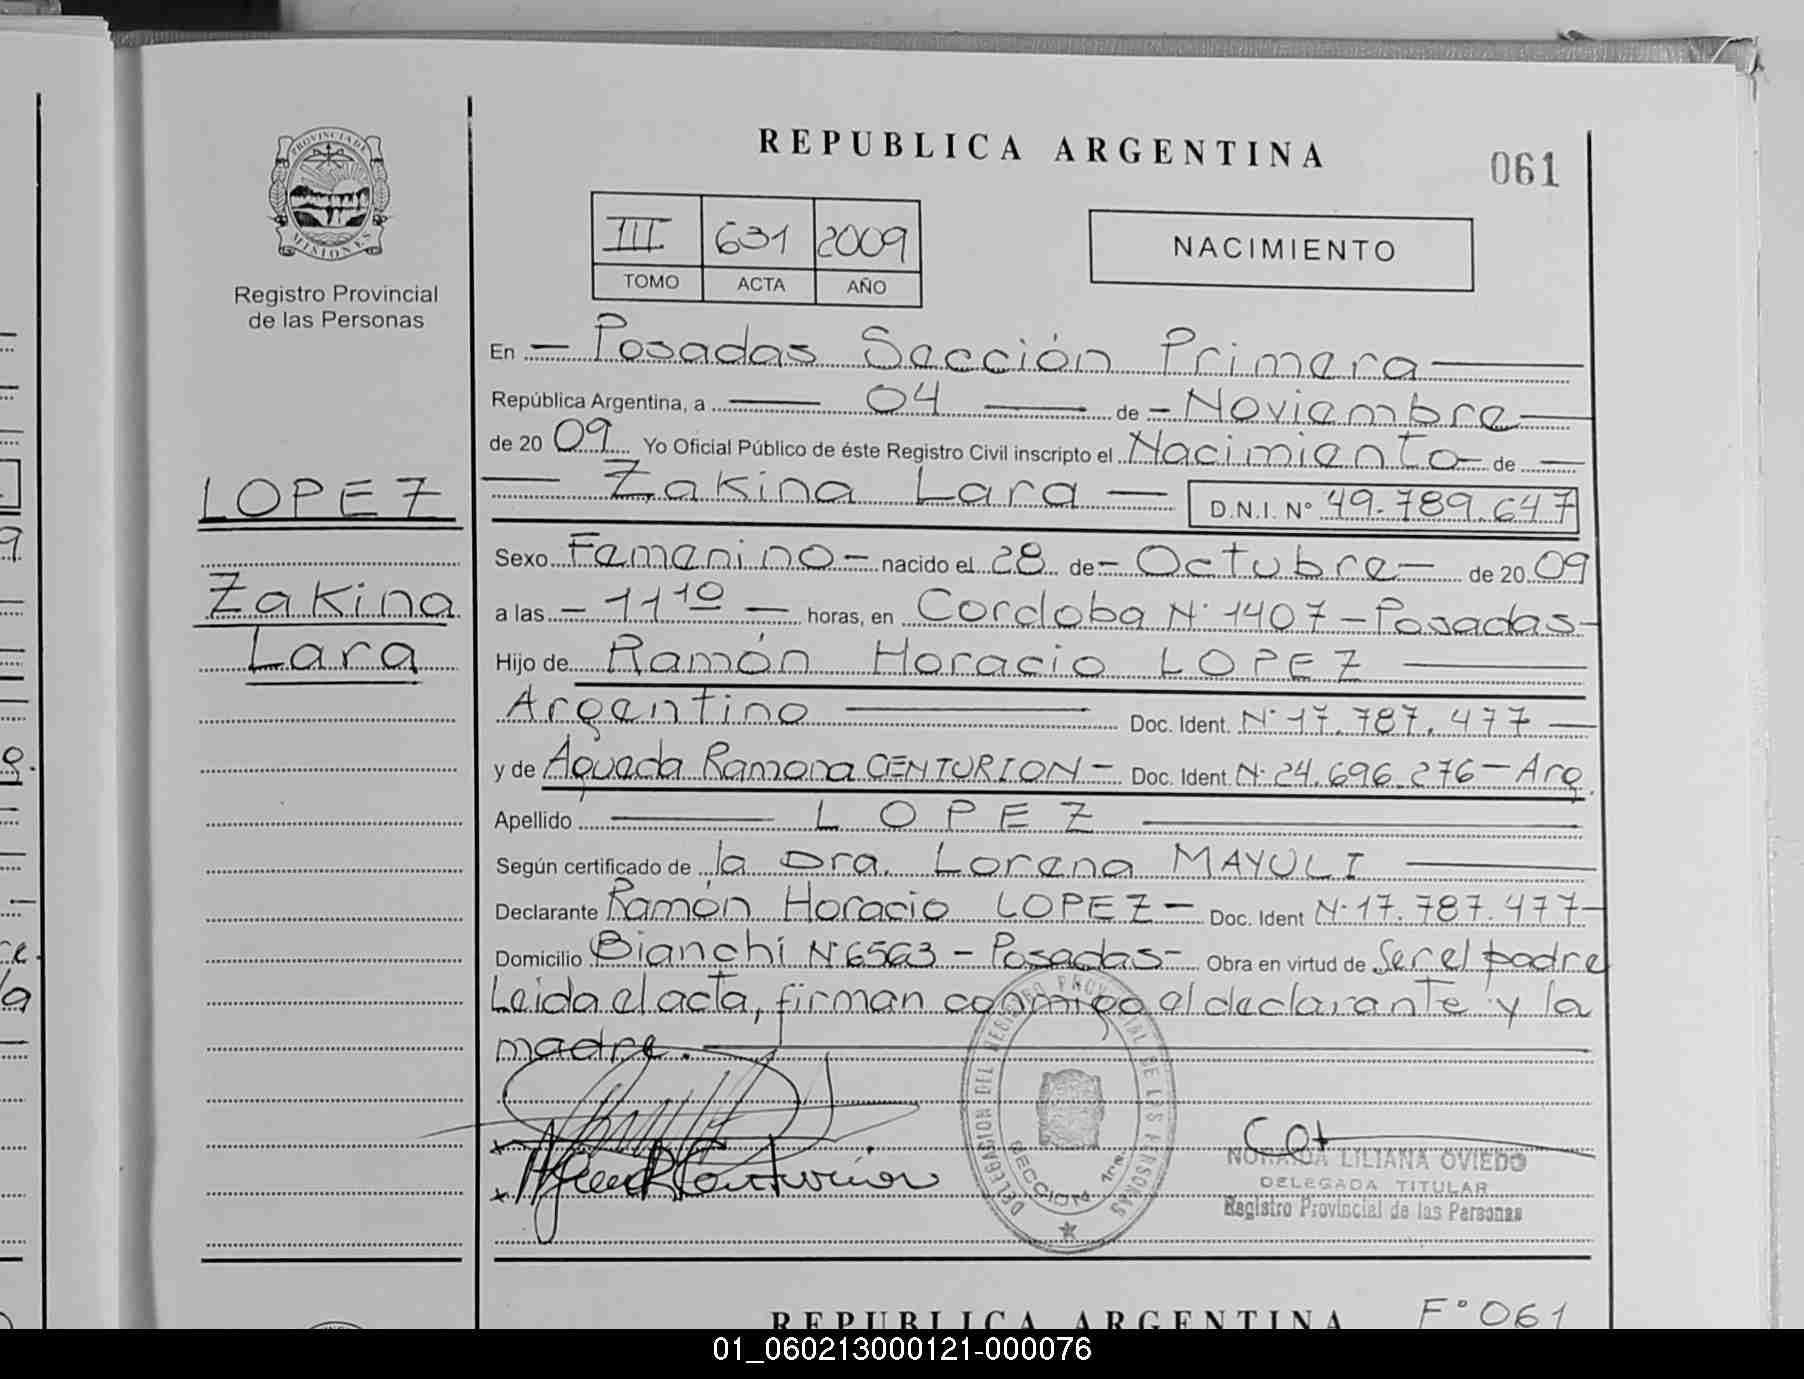 PROVINCIA DE
MISIONES
Registro Provincial
de las Personas
LOPEZ
Zakina
Lara
REPUBLICA ARGENTINA
061
III 631 2009
TOMO ACTA AÑO
NACIMIENTO
En - Posadas Sección Primera
República Argentina, a 04 de - Noviembre
de 20 09 Yo Oficial Público de éste Registro Civil inscripto el Nacimiento de
Zakina Lara D.N.I. N° 49.789.647
Sexo Femenino - nacido el 28 de - Octubre - de 20 09
a las - 11 10 - horas, en Cordoba N° 1407 - Posadas -
Hijo de Ramón Horacio LOPEZ
Argentino Doc. Ident. N° 17.787.477
y de Agueda Ramona CENTURION - Doc. Ident. N° 24.696.276 - Arg.
Apellido LOPEZ
Según certificado de la Dra. Lorena MAYULI
Declarante Ramón Horacio LOPEZ - Doc. Ident N° 17.787.477 -
Domicilio Bianchi N° 6563 - Posadas - Obra en virtud de Ser el padre
Leida el acta, firman conmigo el declarante y la
madre.
DELEGACION DEL REGISTRO PROVINCIAL DE LAS PERSONAS
SECCION 1ra.
LILIANA OVIEDO
DELEGADA TITULAR
Registro Provincial de las Personas
REPUBLICA ARGENTINA
F° 061
01_060213000121-000076